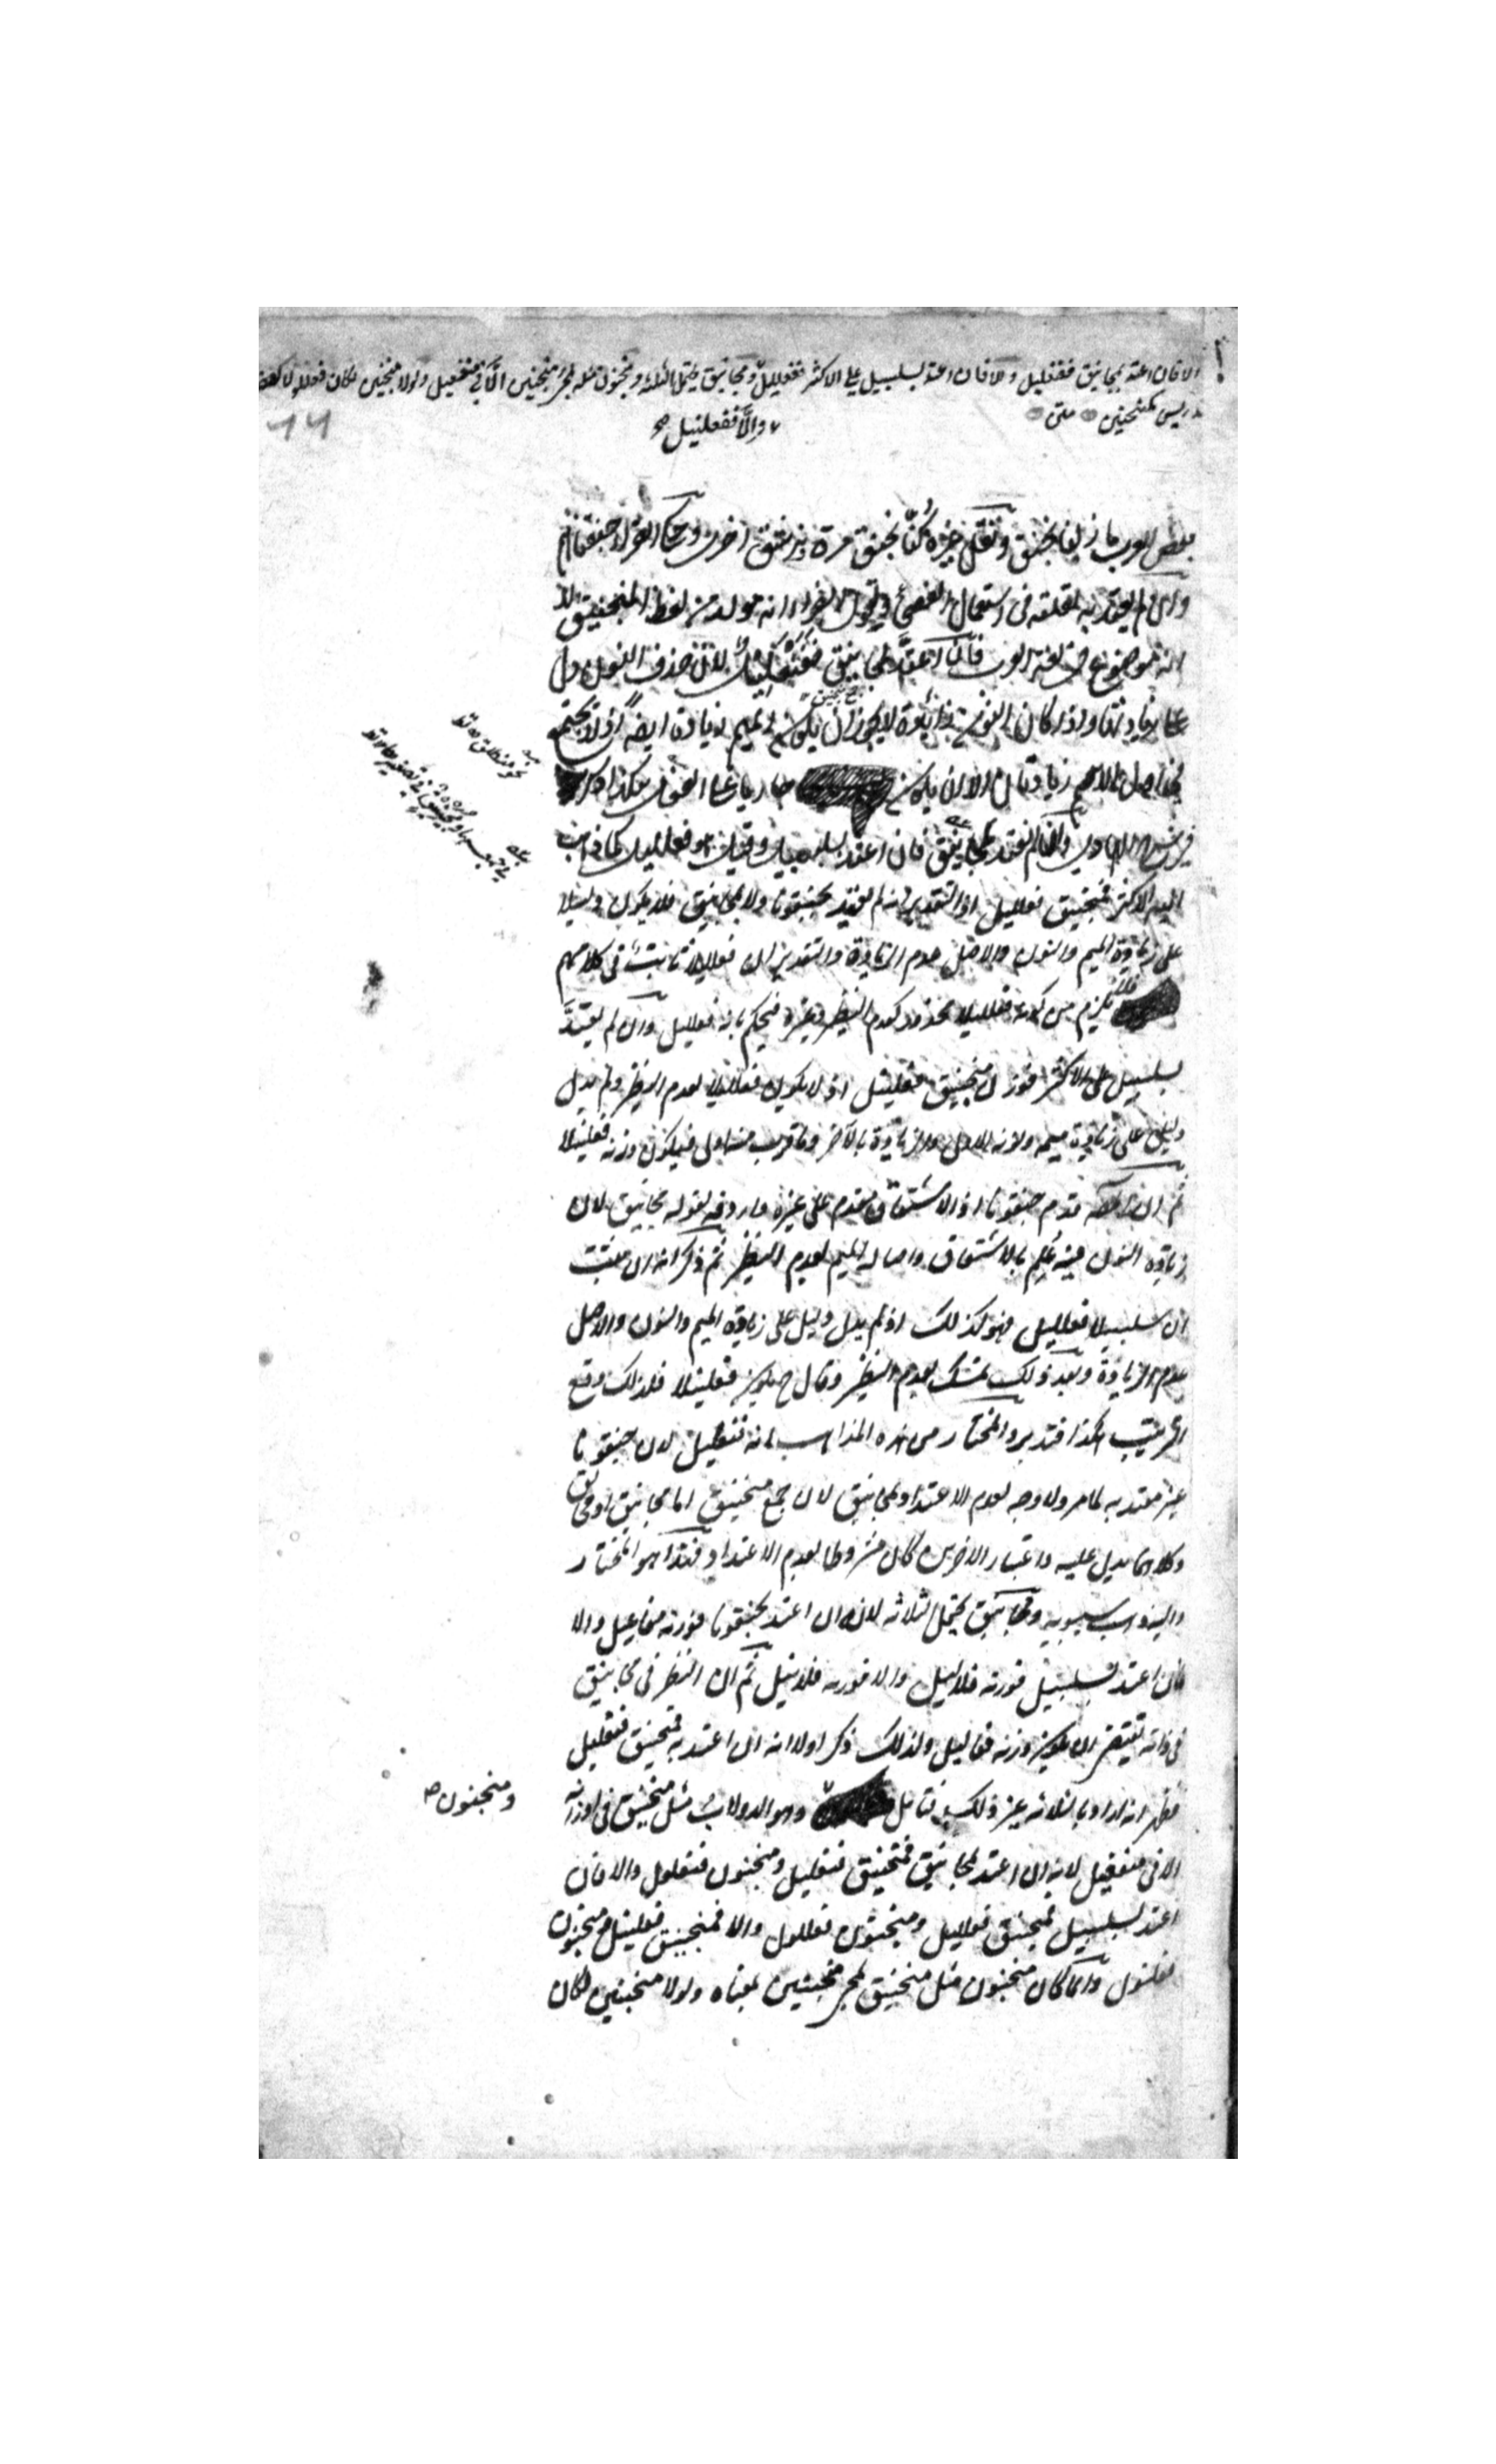 والا فان اعتد بمجانيق ففنعليل والا فان اعتد بسلسبيل على الاكثر ففعلليل ومجانيق يحتمل الثلثة ومنجنون مثله لمجئ منجنين الا في منفعيل ولولا منجنين لكان فعللولا كعضرفوط
كمنجنين متن
والا ففعلنيل صح
بعض العرب ما زلنا نجنق ونقل غيره كنا نجنق مرة ونرشق اخرى وحكى الفراء جنقناهم
وان لم يعتد به لقلته في استعمال الفصحاء ولقول الفراء انه مولد من لفظ المنجنيق
موضوع في لغة العرب فان اعتد بمجانيق ففنعليل لان حذف النون دل
على زيادتها واذا كان النون زائدة لا يجوز ان يكون الميم زيادة ايضا اذ لا يجتمع
في اول الاسم زيادتان الا ان يكون جاريا على الفعل هكذا ذكره
نحو منطلق
في شرح الهادي وان لم يعتد بمجانيق فان اعتد بسلسبيل وقيل هو فعلليل كما ذهب
اليه الاكثر فمنجنيق فعلليل اذ التقدير انه لم يعتد بجنقونا ولا بمجانيق فلا يكون دليلا
على زيادة الميم والنون والاصل عدم الزيادة والتقدير ان فعلليلا ثابت في كلامهم
فلا يلزم من كونه فعلليلا محذور كعدم النظير وغيره فيحكم بانه فعلليل وان لم يعتد
بسلسبيل على الاكثر فوزن منجنيق فعلنيل اذ لا يكون فعلليلا لعدم النظير ولم يدل
دليل على زيادة ميمه ونونه الاولى والزيادة بالآخر وما قرب منه اولى فيكون وزنه فعلنيلا
ثم ان المصنف قدم جنقونا اذ الاشتقاق مقدم على غيره واردفه بقوله مجانيق لان
زيادة النون فيه علم بالاشتقاق واصالة الميم لعدم النظير ثم ذكر انه ان ثبت
ان سلسبيلا فعلليل فهو كذلك اذ لم يدل دليل على زيادة الميم والنون والاصل
عدم الزيادة وبعد ذلك تمسك بعدم النظير وقال ح يكون فعلنيلا فلذلك وقع
الترتيب هكذا فتدبر والمختار من هذه المذاهب انه فنعليل لان جنقونا
غير معتد به لما مر ولا وجه لعدم الاعتداد بمجانيق لان جمع منجنيق اما مجانيق او مجانق
وكلاهما يدل عليه واعتبار الاخرين كان مشروطا بعدم الاعتداد فهذا هو المختار
واليه ذهب سيبويه ومجانيق يحتمل ثلاثة لانه ان اعتد بجنقونا فوزنه مفاعيل والا
فان اعتد بسلسبيل فوزنه فلاليل والا فوزنه فلانيل ثم ان النظر في مجانيق
في ذاته يقتضي ان يكون وزنه فعاليل ولذلك ذكر اولا انه ان اعتد به فمنجنيق فنعليل
فظهر انه اراد بالثلاثة غير ذلك فتامل وهو الدولاب مثل منجنيق في اوزانه
ومنجنون صح
الا في منفعيل لانه ان اعتد بمجانيق فمنجنيق فنعليل ومنجنون فنعلول والا فان
اعتد بسلسبيل فمنجنيق فعلليل ومنجنون فعللول والا فمنجنيق فعلنيل ومنجنون
فعلنول وانما كان منجنون مثل منجنيق لمجئ منجنين بمعناه ولولا منجنين لكان